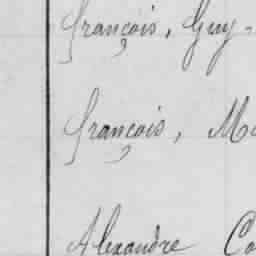 françois, Guy-
françois, M
Alexandre Co